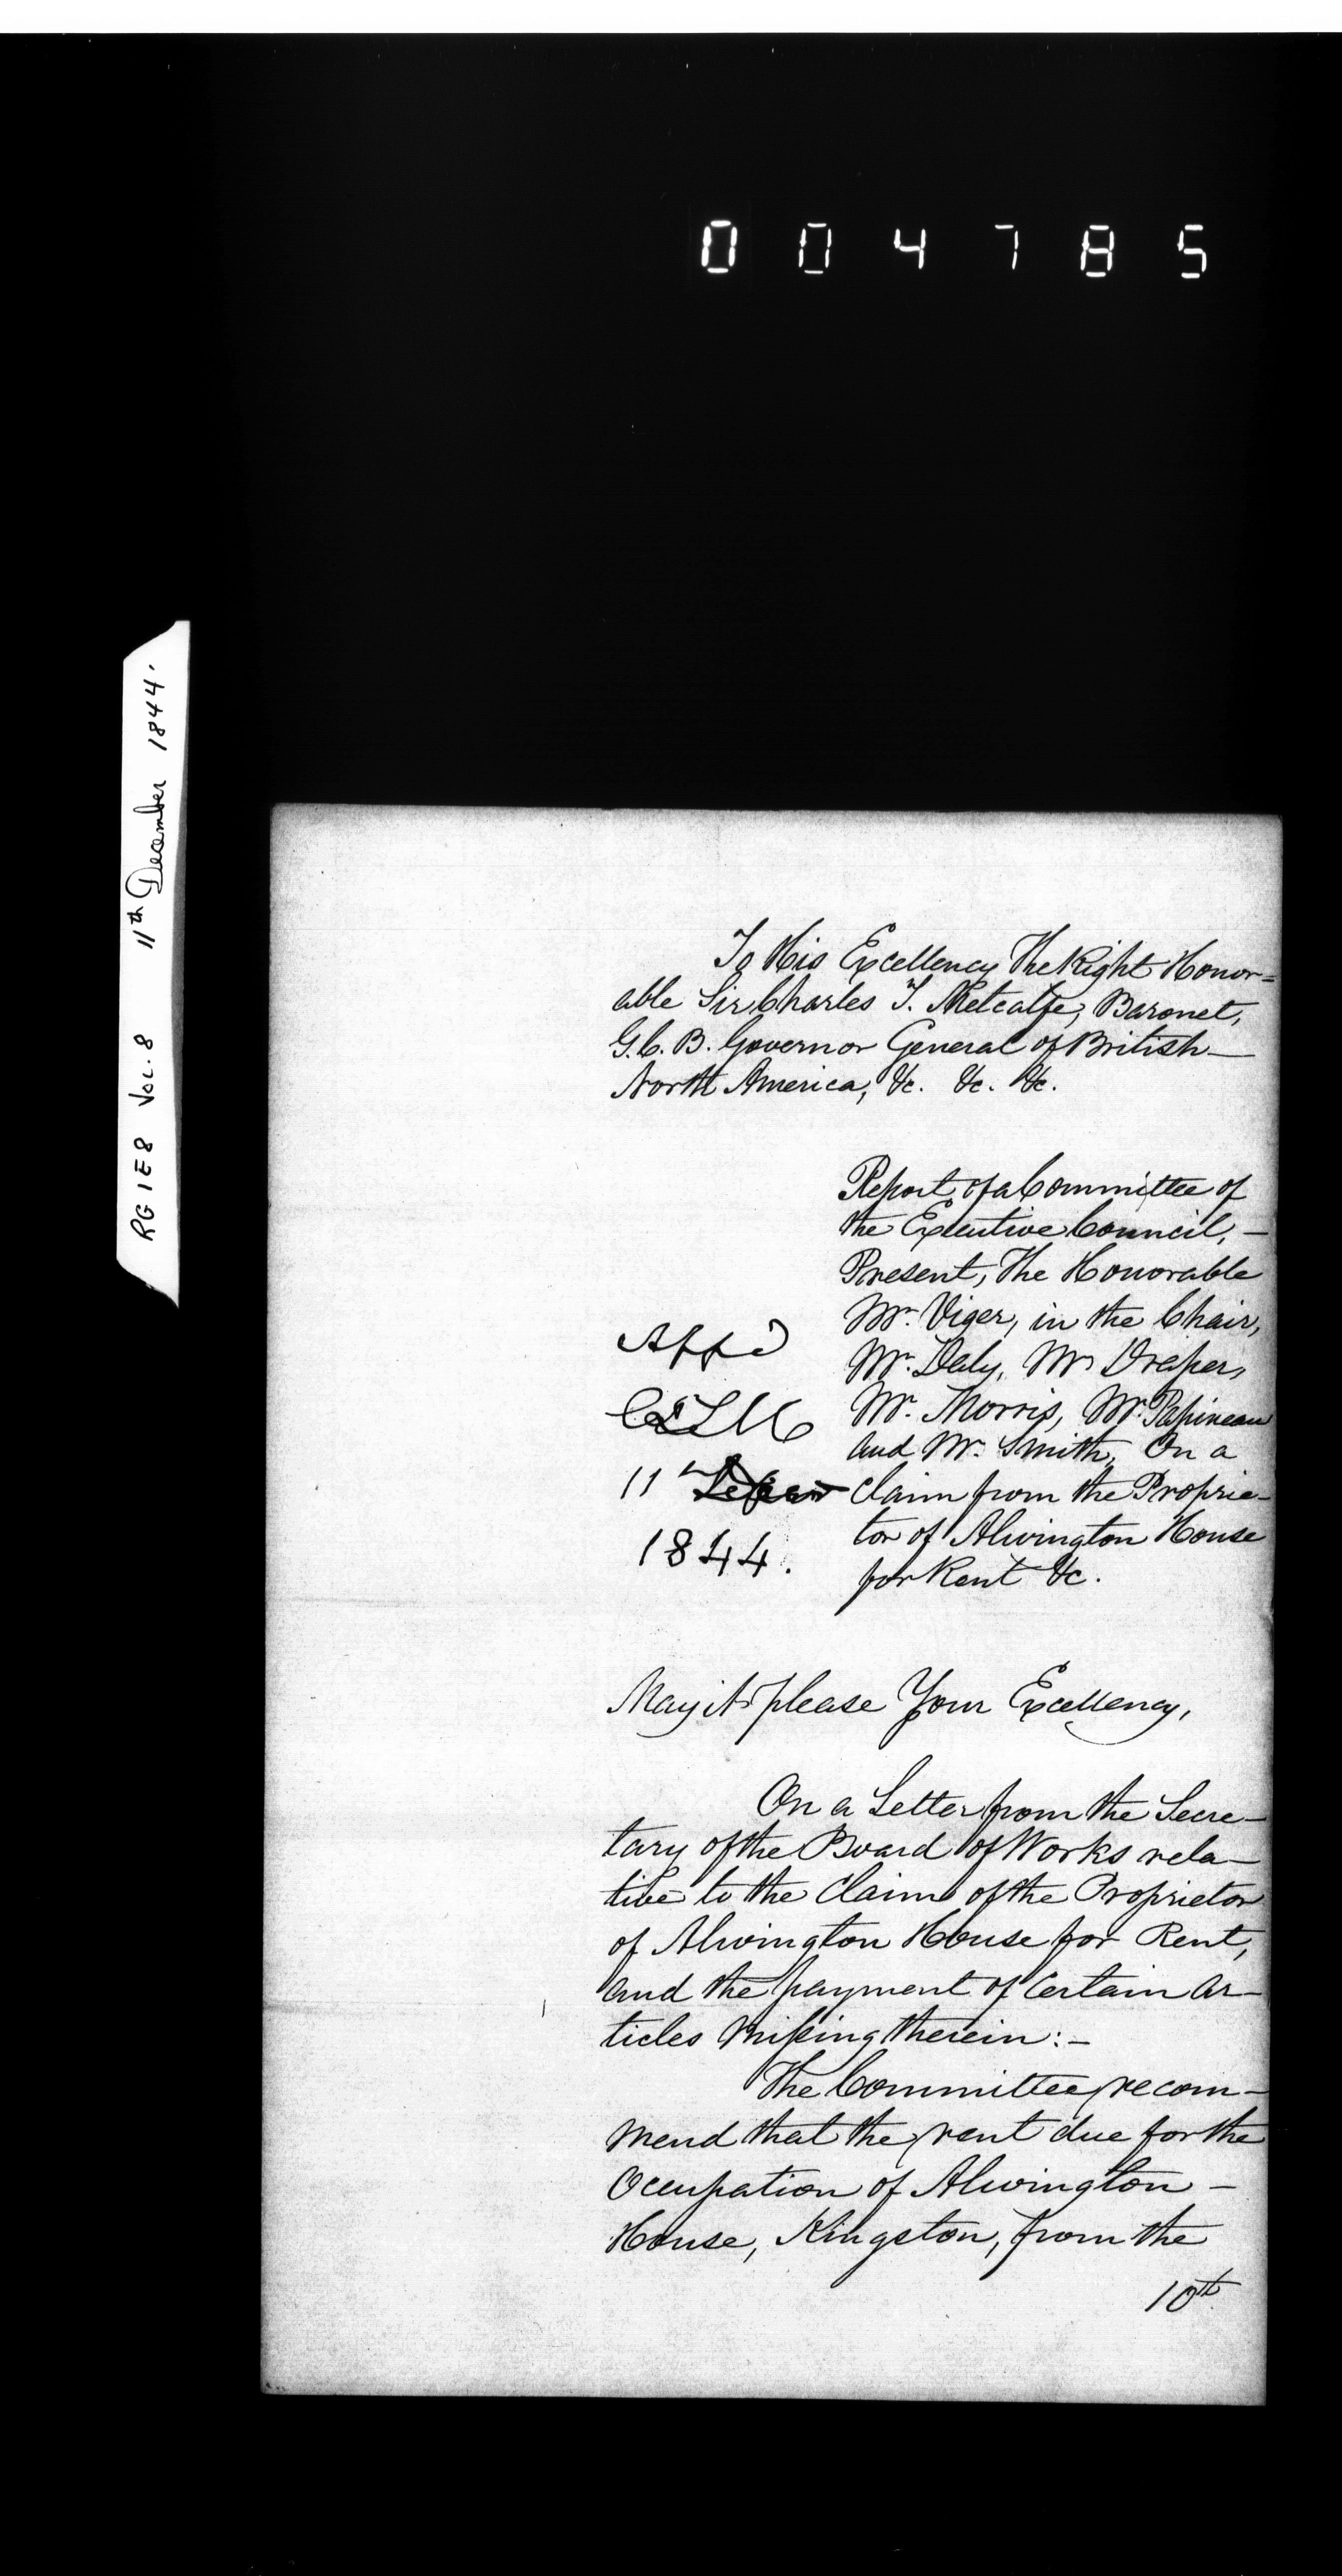 004785
RG 1 E 8 Vol. 8 11th December 1844.
To His Excellency The Right Honor=
able Sir Charles T. Metcalfe, Baronet,
G.C.B. Governor General of British
North America, &c. &c. &c.
Report of a Committee of
the Executive Council, —
Present, The Honorable
Mr. Viger, in the Chair,
Mr. Daly, Mr Draper,
Mr. Morris, Mr. Papineau
and Mr. Smith, On a
claim from the Proprie-
tor of Alwington House
for Rent &c.
Appd
CTM
11
1844.
May it please Your Excellency,
On a Letter from the Secre-
tary of the Board of Works rela-
tive to the Claim of the Proprietor
of Alwington House for Rent,
and the payment of certain ar-
ticles missing therein:-
The Committee recom-
mend that the rent due for the
Occupation of Alwington -
House, Kingston, from the
10th